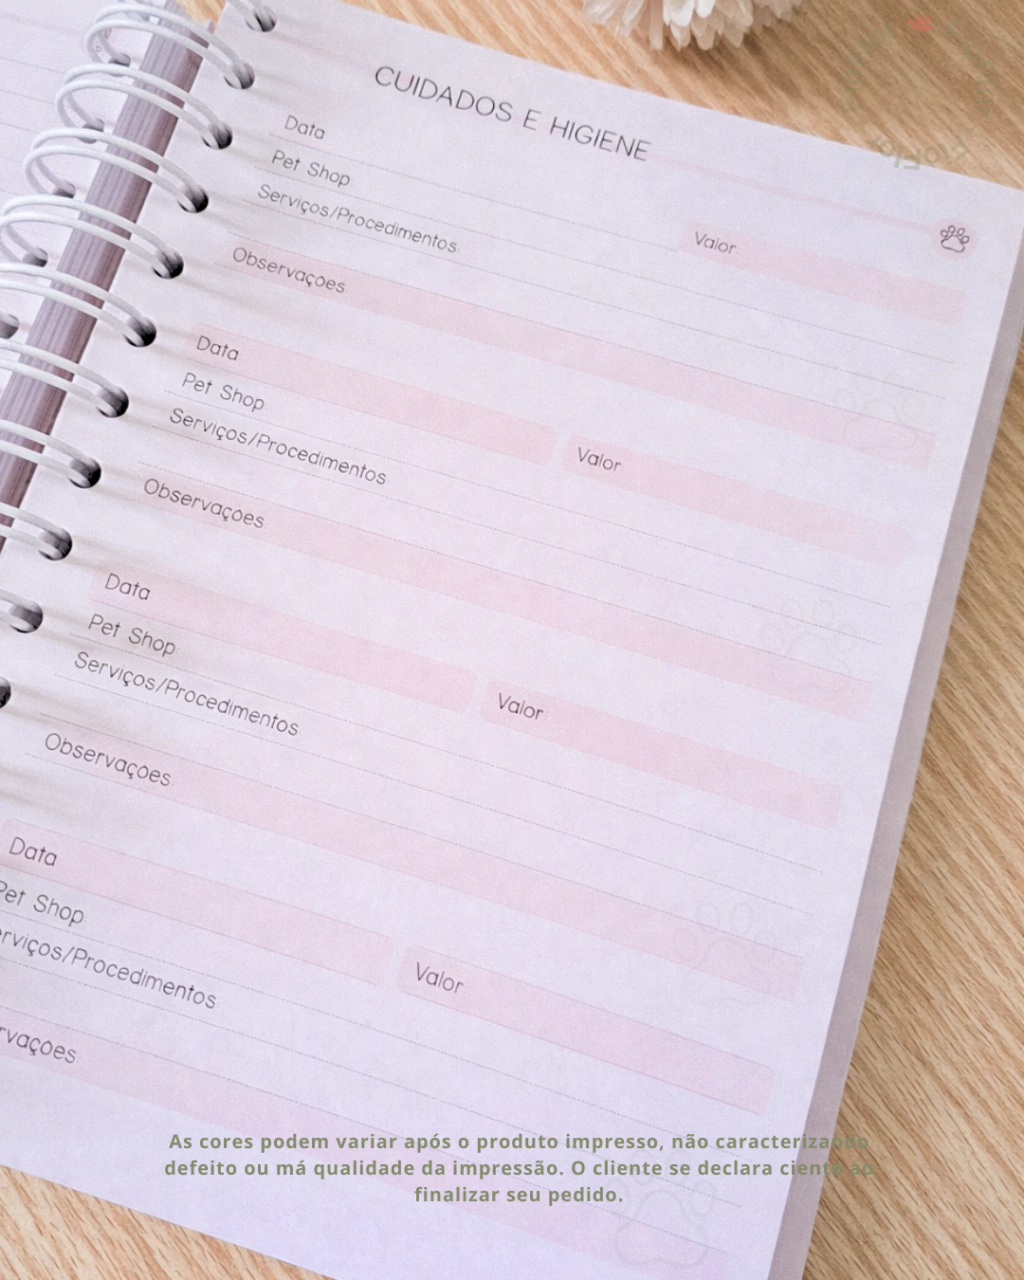 CUIDADOS E HIGIENE
Data
Pet Shop
Serviços/Procedimentos
Valor
Observações
Data
Pet Shop
Serviços/Procedimentos
Valor
Observações
Data
Pet Shop
Serviços/Procedimentos
Valor
Observações
Data
Pet Shop
erviços/Procedimentos
Valor
rvações
As cores podem variar após o produto impresso, não caracterizando
defeito ou má qualidade da impressão. O cliente se declara ciente ao
finalizar seu pedido.